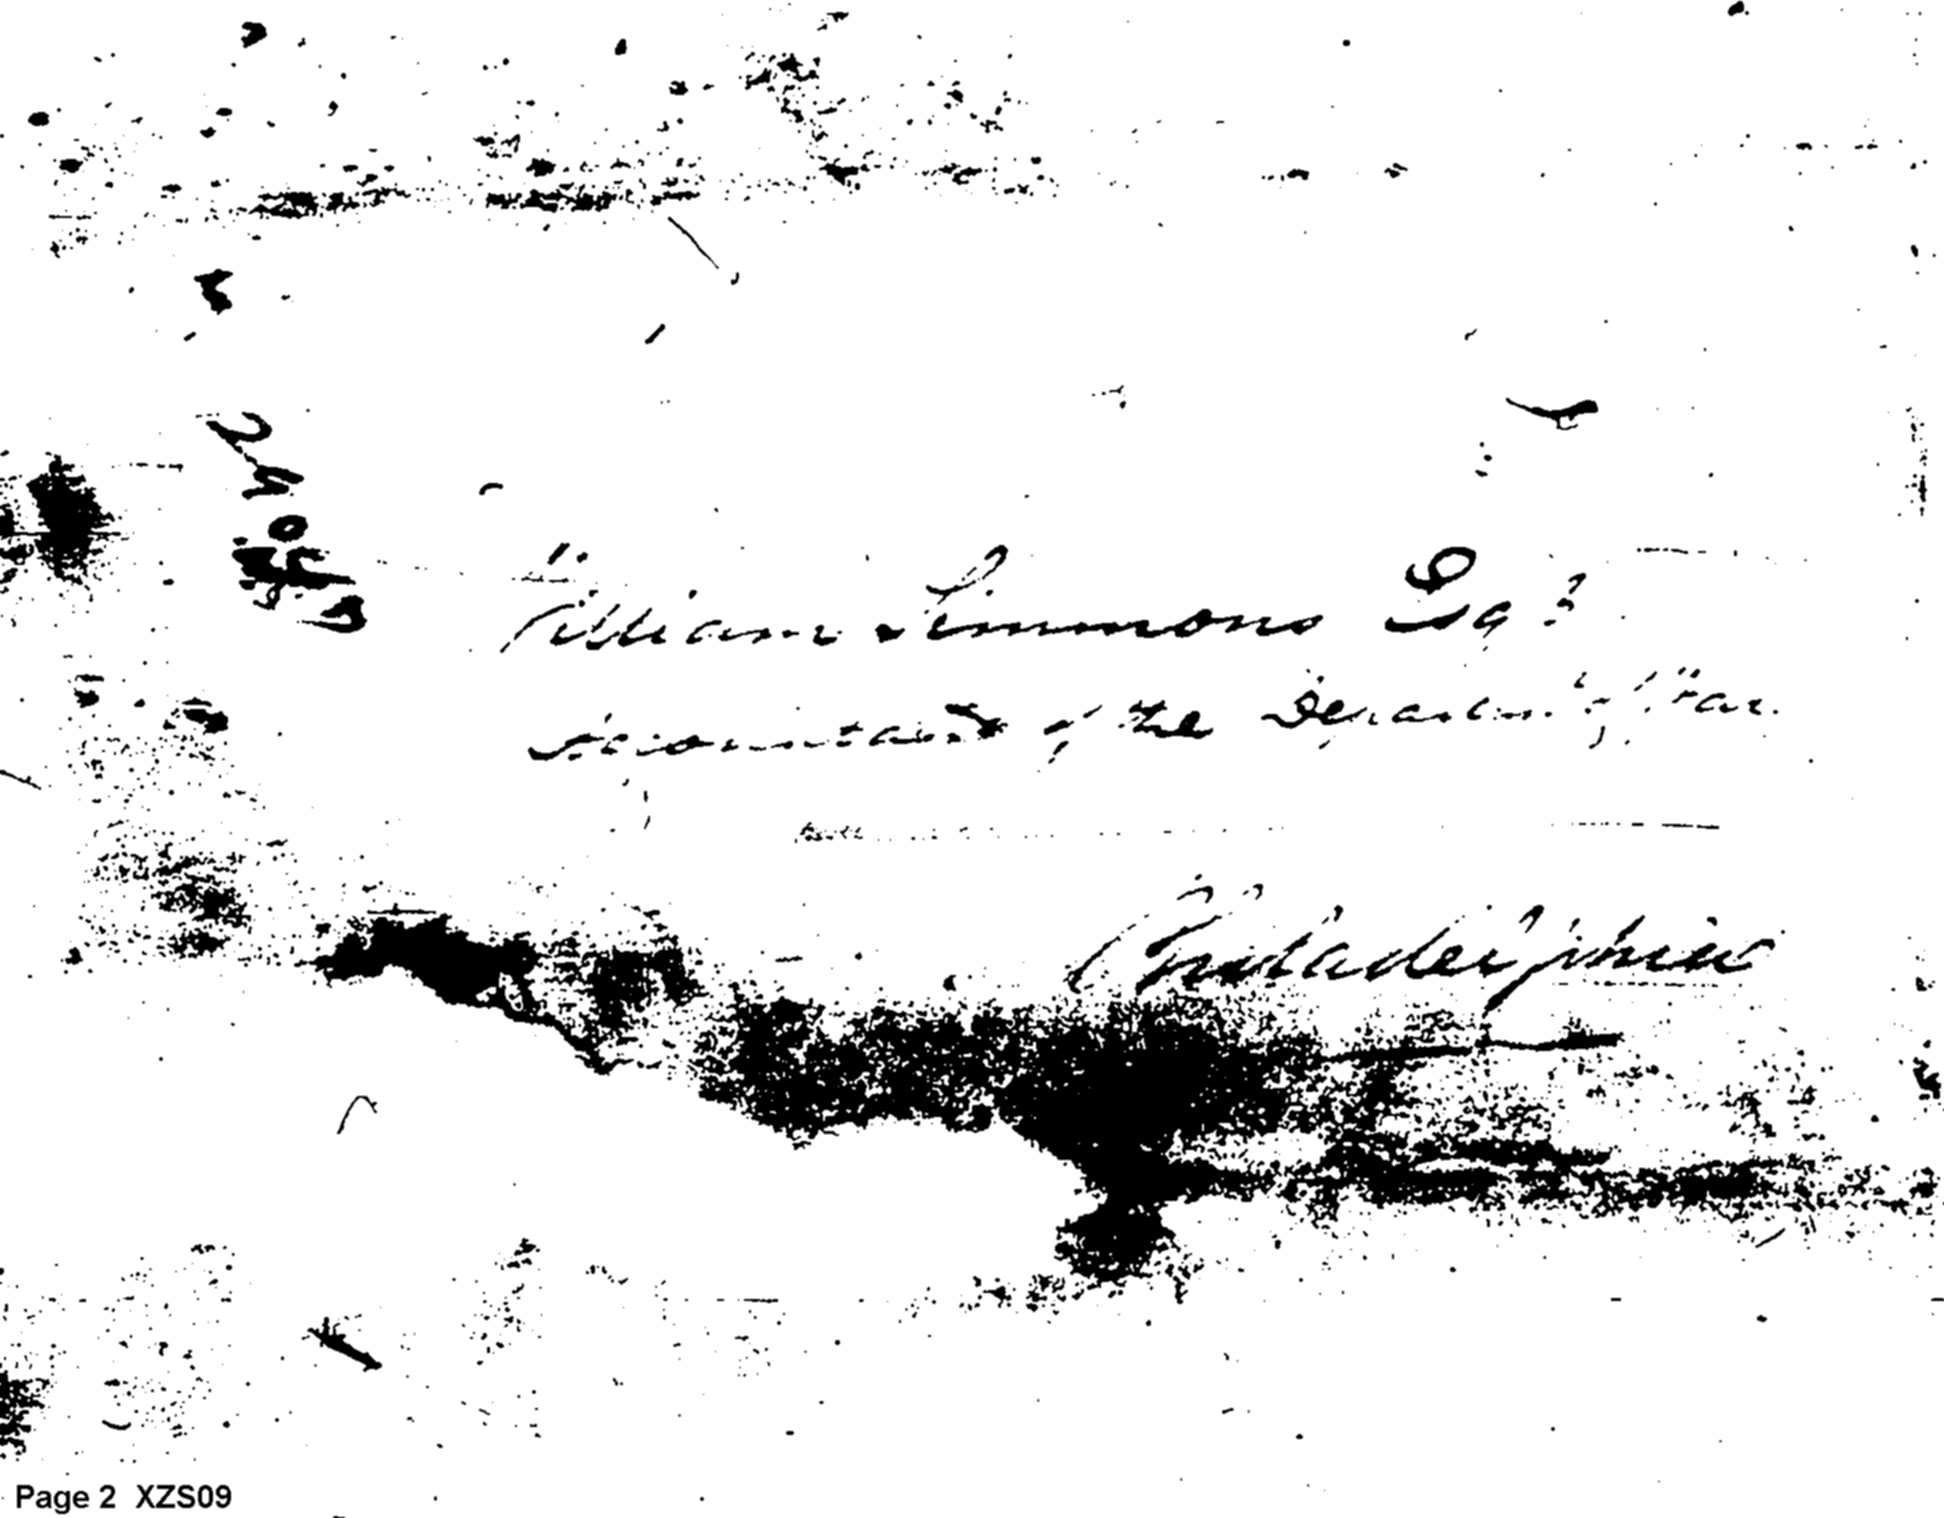 William Simmons Esqr
Accountant of the Departmt of War.
Philadelphia
Page 2 XZS09